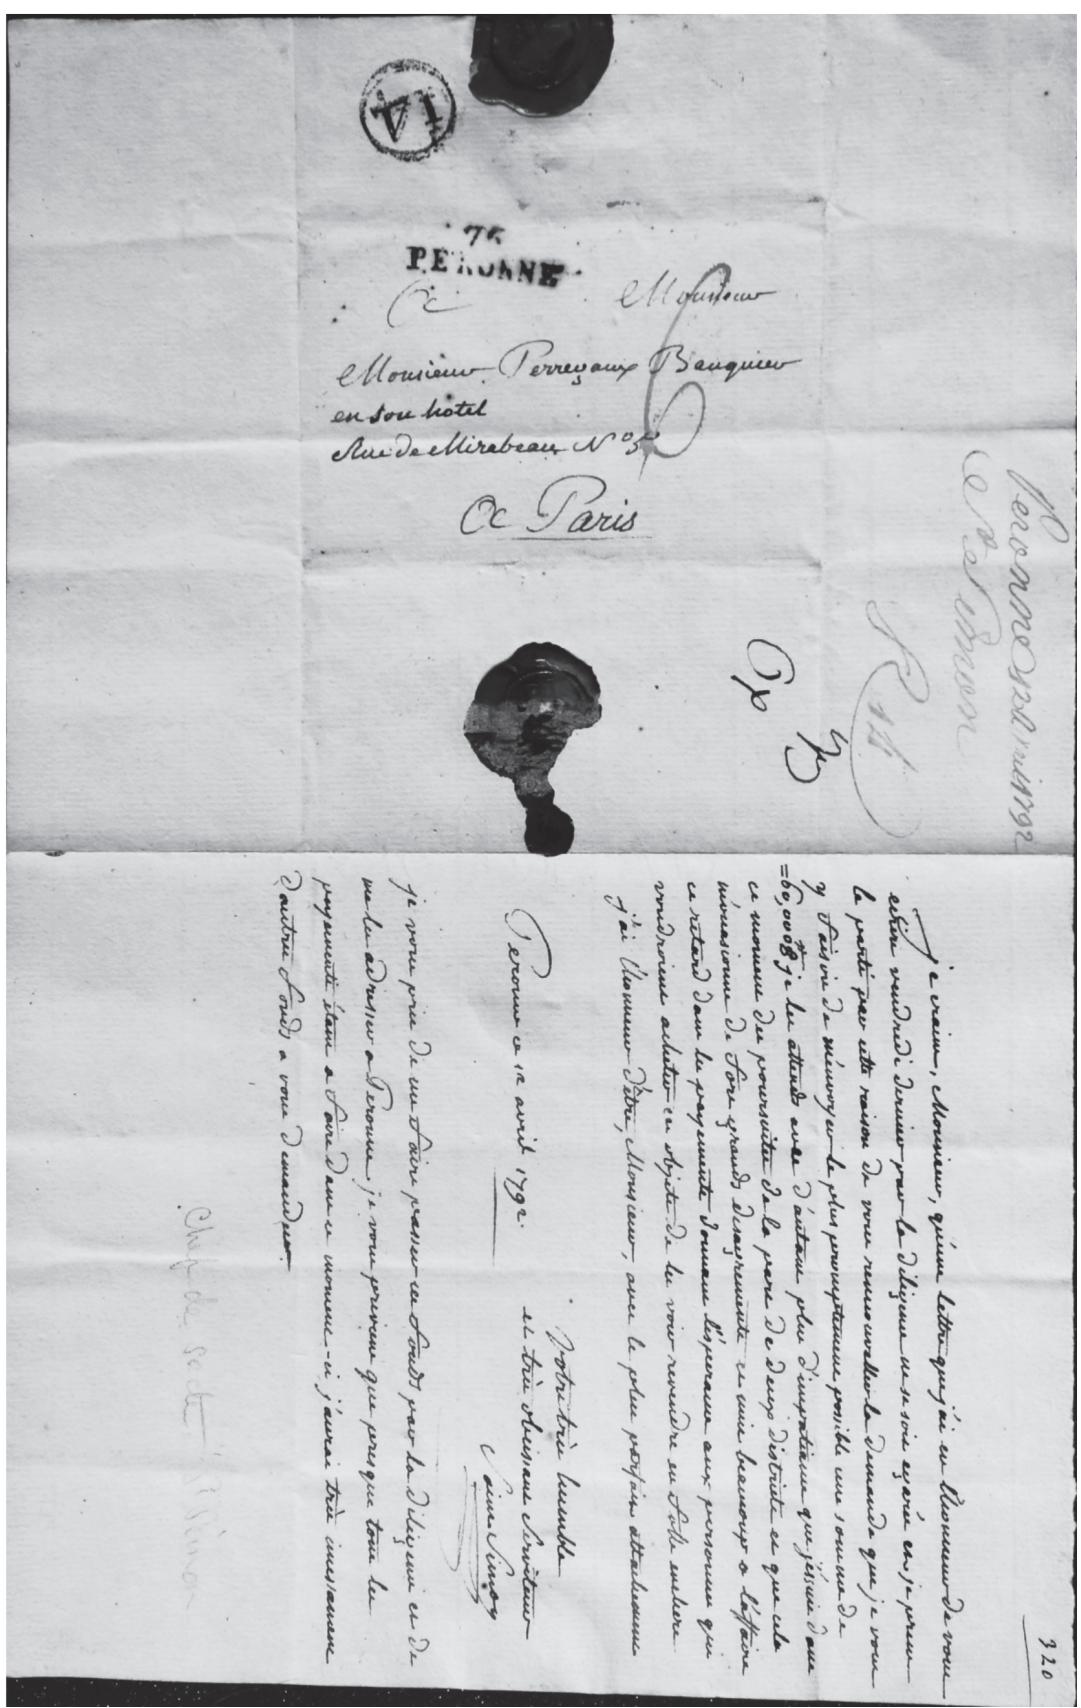 14
76
PERONNE
A Monsieur
Monsieur Perregaux Banquier
en son hotel
Rue de Mirabeau N° 5
A Paris
6
Peronne 12 avril 1792
St Simon
R 14
320
je crains, Monsieur, qu'une lettre que j'ai eu l'honneur de vous
ecrire vendredi dernier par la diligence ne se soit egarée et je prens
le parti par cette raison de vous renouveller la demande que je vous
y faisois de m'envoyer le plus promptement possible une somme de
=60,000 je les attends avec d'autant plus d'impatience que j'éssuie dans
ce moment des poursuites de la part de deux districts et que cela
m'occasionne de fort grands desagrements et nuit beaucoup a l'affaire
ce retard dans les payements donnant l'ésperance aux personnes qui
voudroient acheter ces objets de les voir revendre en folle enchere
j'ai l'honneur d'être, Monsieur, avec le plus parfait attachement
Votre très humble
et très obeissant Serviteur
Saint Simon
Peronne ce 12 avril 1792.
je vous prie de me faire passer ces fonds par la diligence et de
me les adresser a Peronne, je vous previens que presque tous les
payements étant a faire dans ce moment-ci j'aurai très incessament
d'autres fonds a vous demander.
Chef de secte St Simon